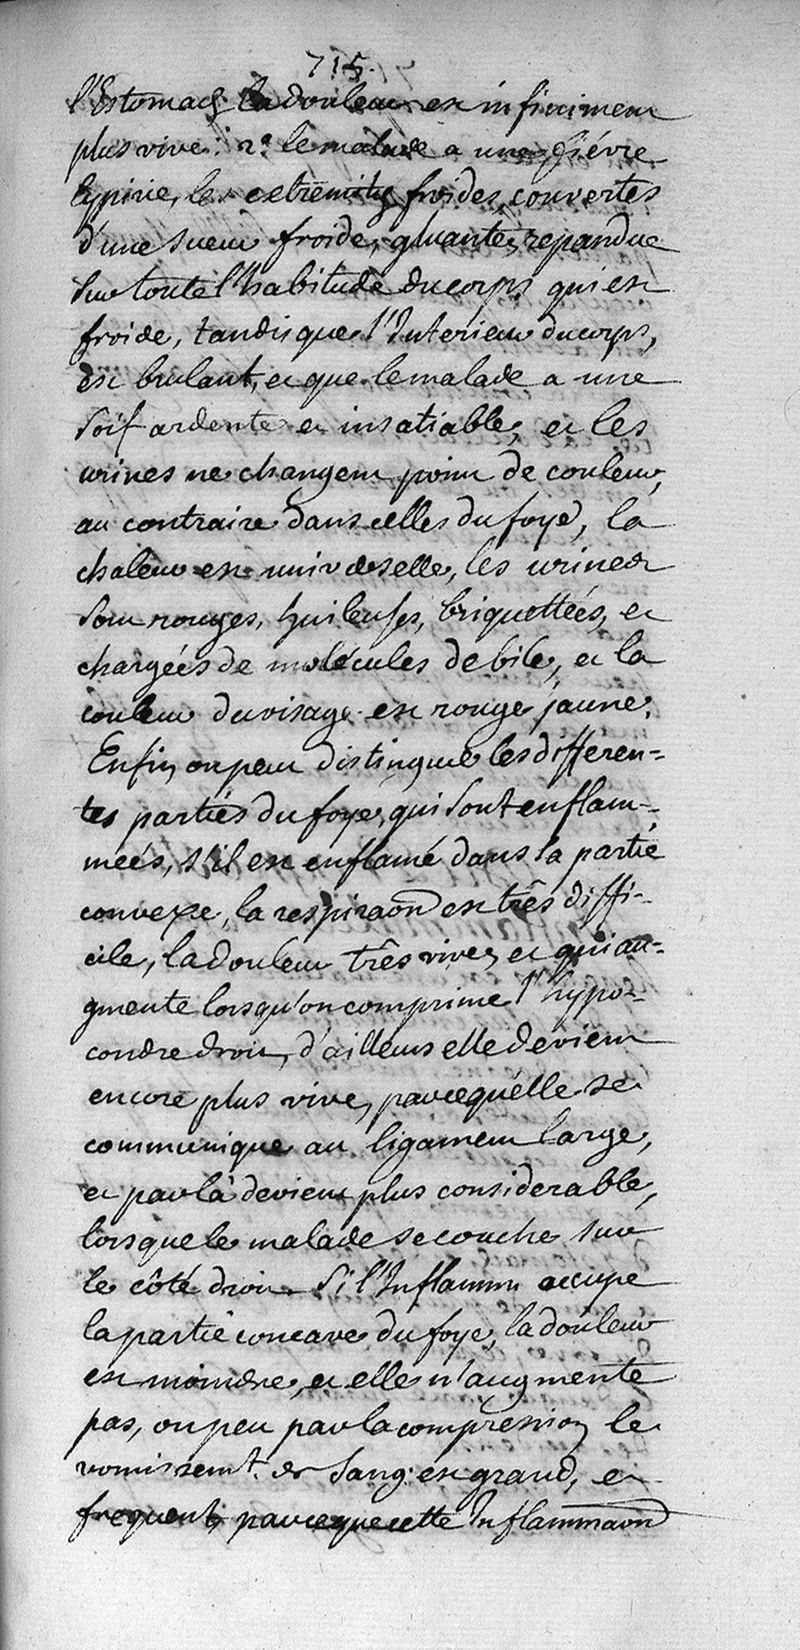 715.
l'Estomach la douleur est infiniment
plus vive: 2° le malade a une fiévre
lypirie, les extremités froides, couvertes
d'une sueur froide, gluante, repandue
sur toute l'habitude du corps qui est
froide, tandis que l'Interieur du corps,
est brulant, et que le malade a une
soif ardente et insatiable, et les
urines ne changent point de couleur,
au contraire dans celles du foye, la
chaleur est universelle, les urines
sont rouges, huileuses, briquettées, et
chargées de molécules de bile, et la
couleur du visage est rouge jaune.
Enfin on peut distinguer les differen=
tes parties du foye, qui sont enflam=
meés, s'il est enflamé dans la partie
convexe, la respiraon est três diffi=
cile, la douleur três vive, et qui au=
gmente lorsqu'on comprime l'hypo=
condre droit, d'ailleurs elle devient
encore plus vive, parcequ'elle se
communique au ligament large,
et par là devient plus considerable,
lorsque le malade se couche sur
le côté droit. Si l'Inflammn occupe
la partie concave du foye, la douleur
est moindre, et elle n'augmente
pas, ou peu par la compression, le
vomissemt. de sang est grand, et
frequent, parceque cette Inflammaon